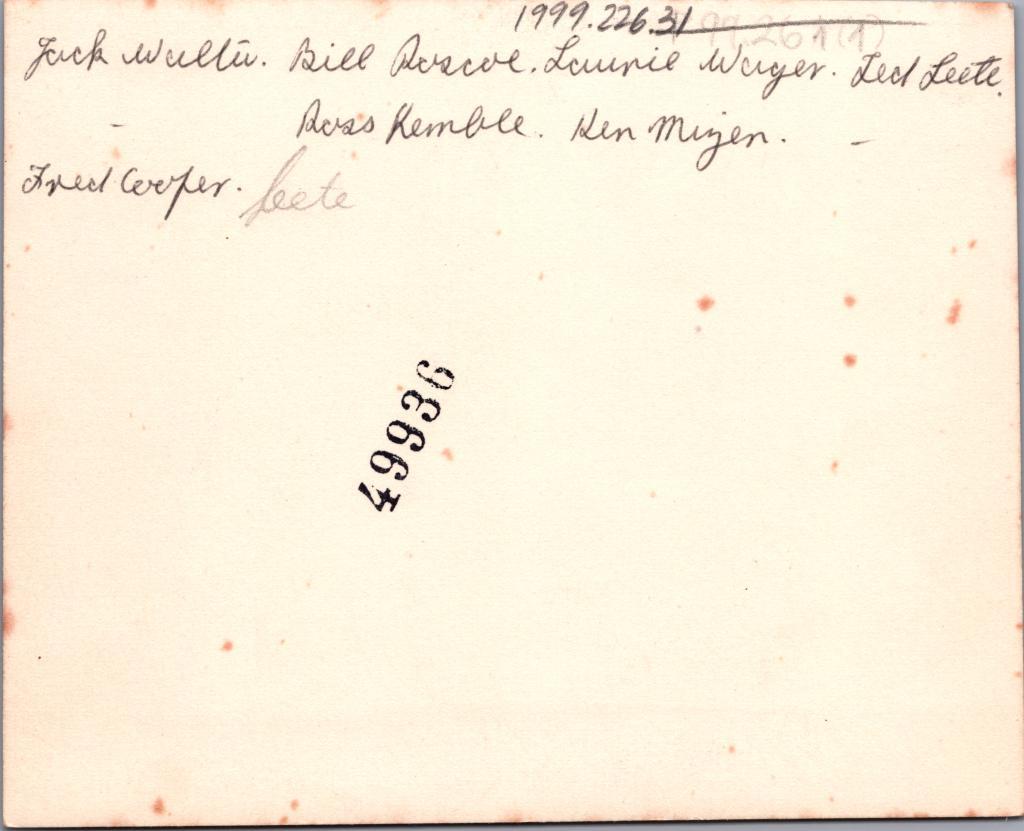 1999.226.31 99.261(1)
Jack Walter. Bill Roscoe. Laurie Wager. Ted Leete.
- Ross Kemble. Ken Mizen. -
Fred Cooper. Leete
49936